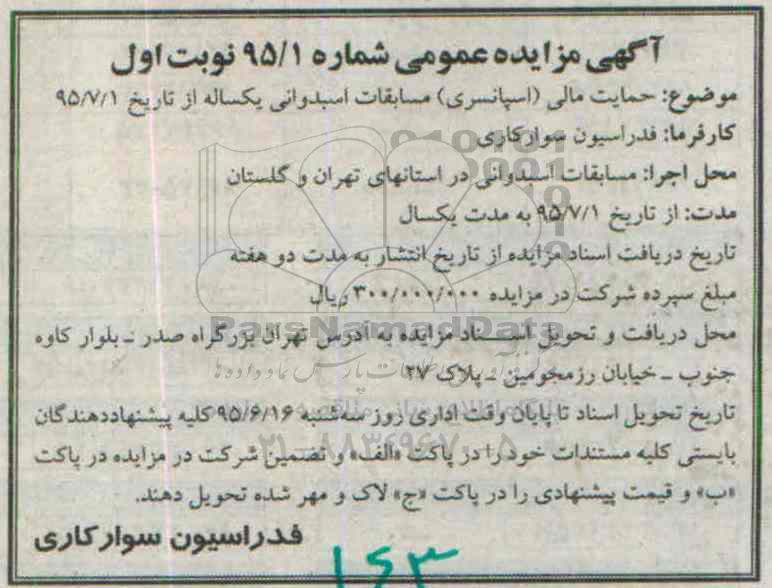 آگهی مزایده عمومی شماره ۹۵/۱ نوبت اول
موضوع: حمایت مالی (اسپانسری) مسابقات اسبدوانی یکساله از تاریخ ۹۵/۷/۱
کارفرما: فدراسیون سوارکاری
محل اجرا: مسابقات اسبدوانی در استانهای تهران و گلستان
مدت: از تاریخ ۹۵/۷/۱ به مدت یکسال
تاریخ دریافت اسناد مزایده از تاریخ انتشار به مدت دو هفته
مبلغ سپرده شرکت در مزایده ۳۰۰/۰۰۰/۰۰۰ ریال
ParsNamadData
محل دریافت و تحویل اسناد مزایده به آدرس تهران بزرگراه صدر ـ بلوار کاوه
جنوب ـ خیابان رزمجومین ـ پلاک ۲۷
تاریخ تحویل اسناد تا پایان وقت اداری روز سه‌شنبه ۹۵/۶/۱۶ کلیه پیشنهاددهندگان
بایستی کلیه مستندات خود را در پاکت «الف» و تضمین شرکت در مزایده در پاکت
«ب» و قیمت پیشنهادی را در پاکت «ج» لاک و مهر شده تحویل دهند.
فدراسیون سوارکاری
۱۶۳